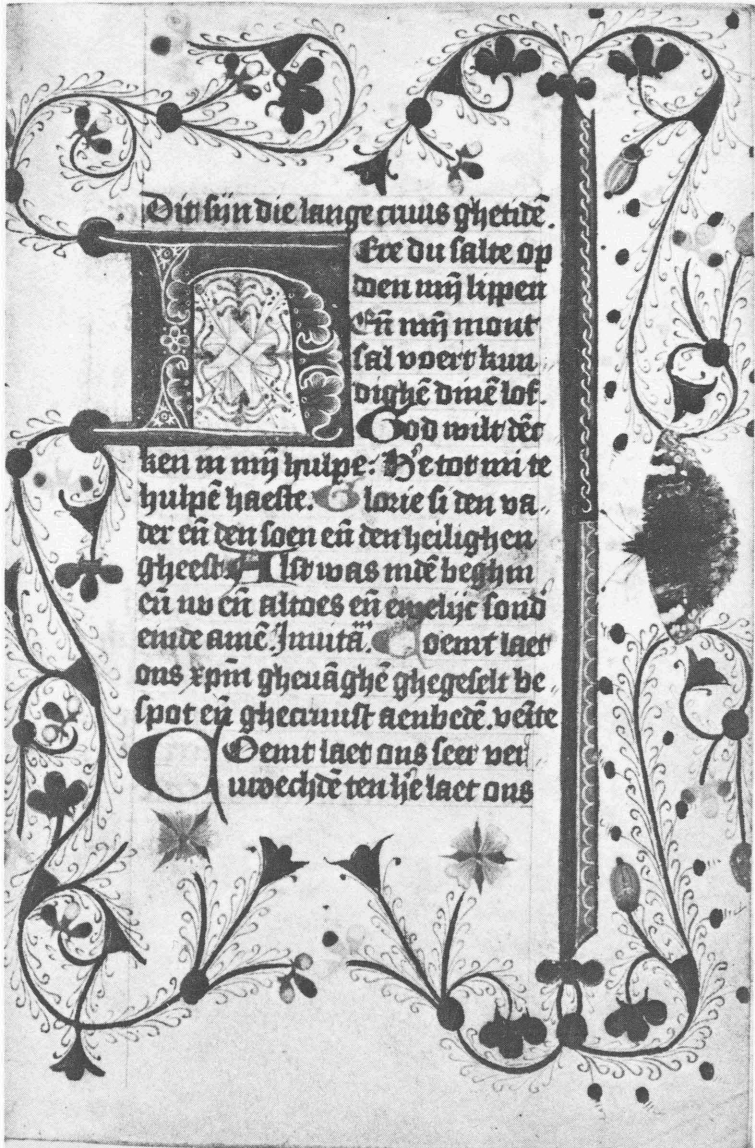 Dit sijn die lange cruus ghetidē.
Ere du salte op
doen mӯ lippen
Eñ mӯ mont
sal voert kun
dighē dinē lof.
God wilt dēc
ken in mӯ hulpe. He tot mi te
hulpē haeste. Glorie si den va„
der eñ den soen eñ den heilighen
gheest Alst was indē beghin
eñ nv eñ altoes eñ ewelijc sond
einde amē. Inuitā. Coemt laet
ons xpm̄ gheuāghē ghegeselt be„
spot eñ ghecruust aenbedē. venite
COemt laet ons seer ver
uroechdē ten h̄e laet ons